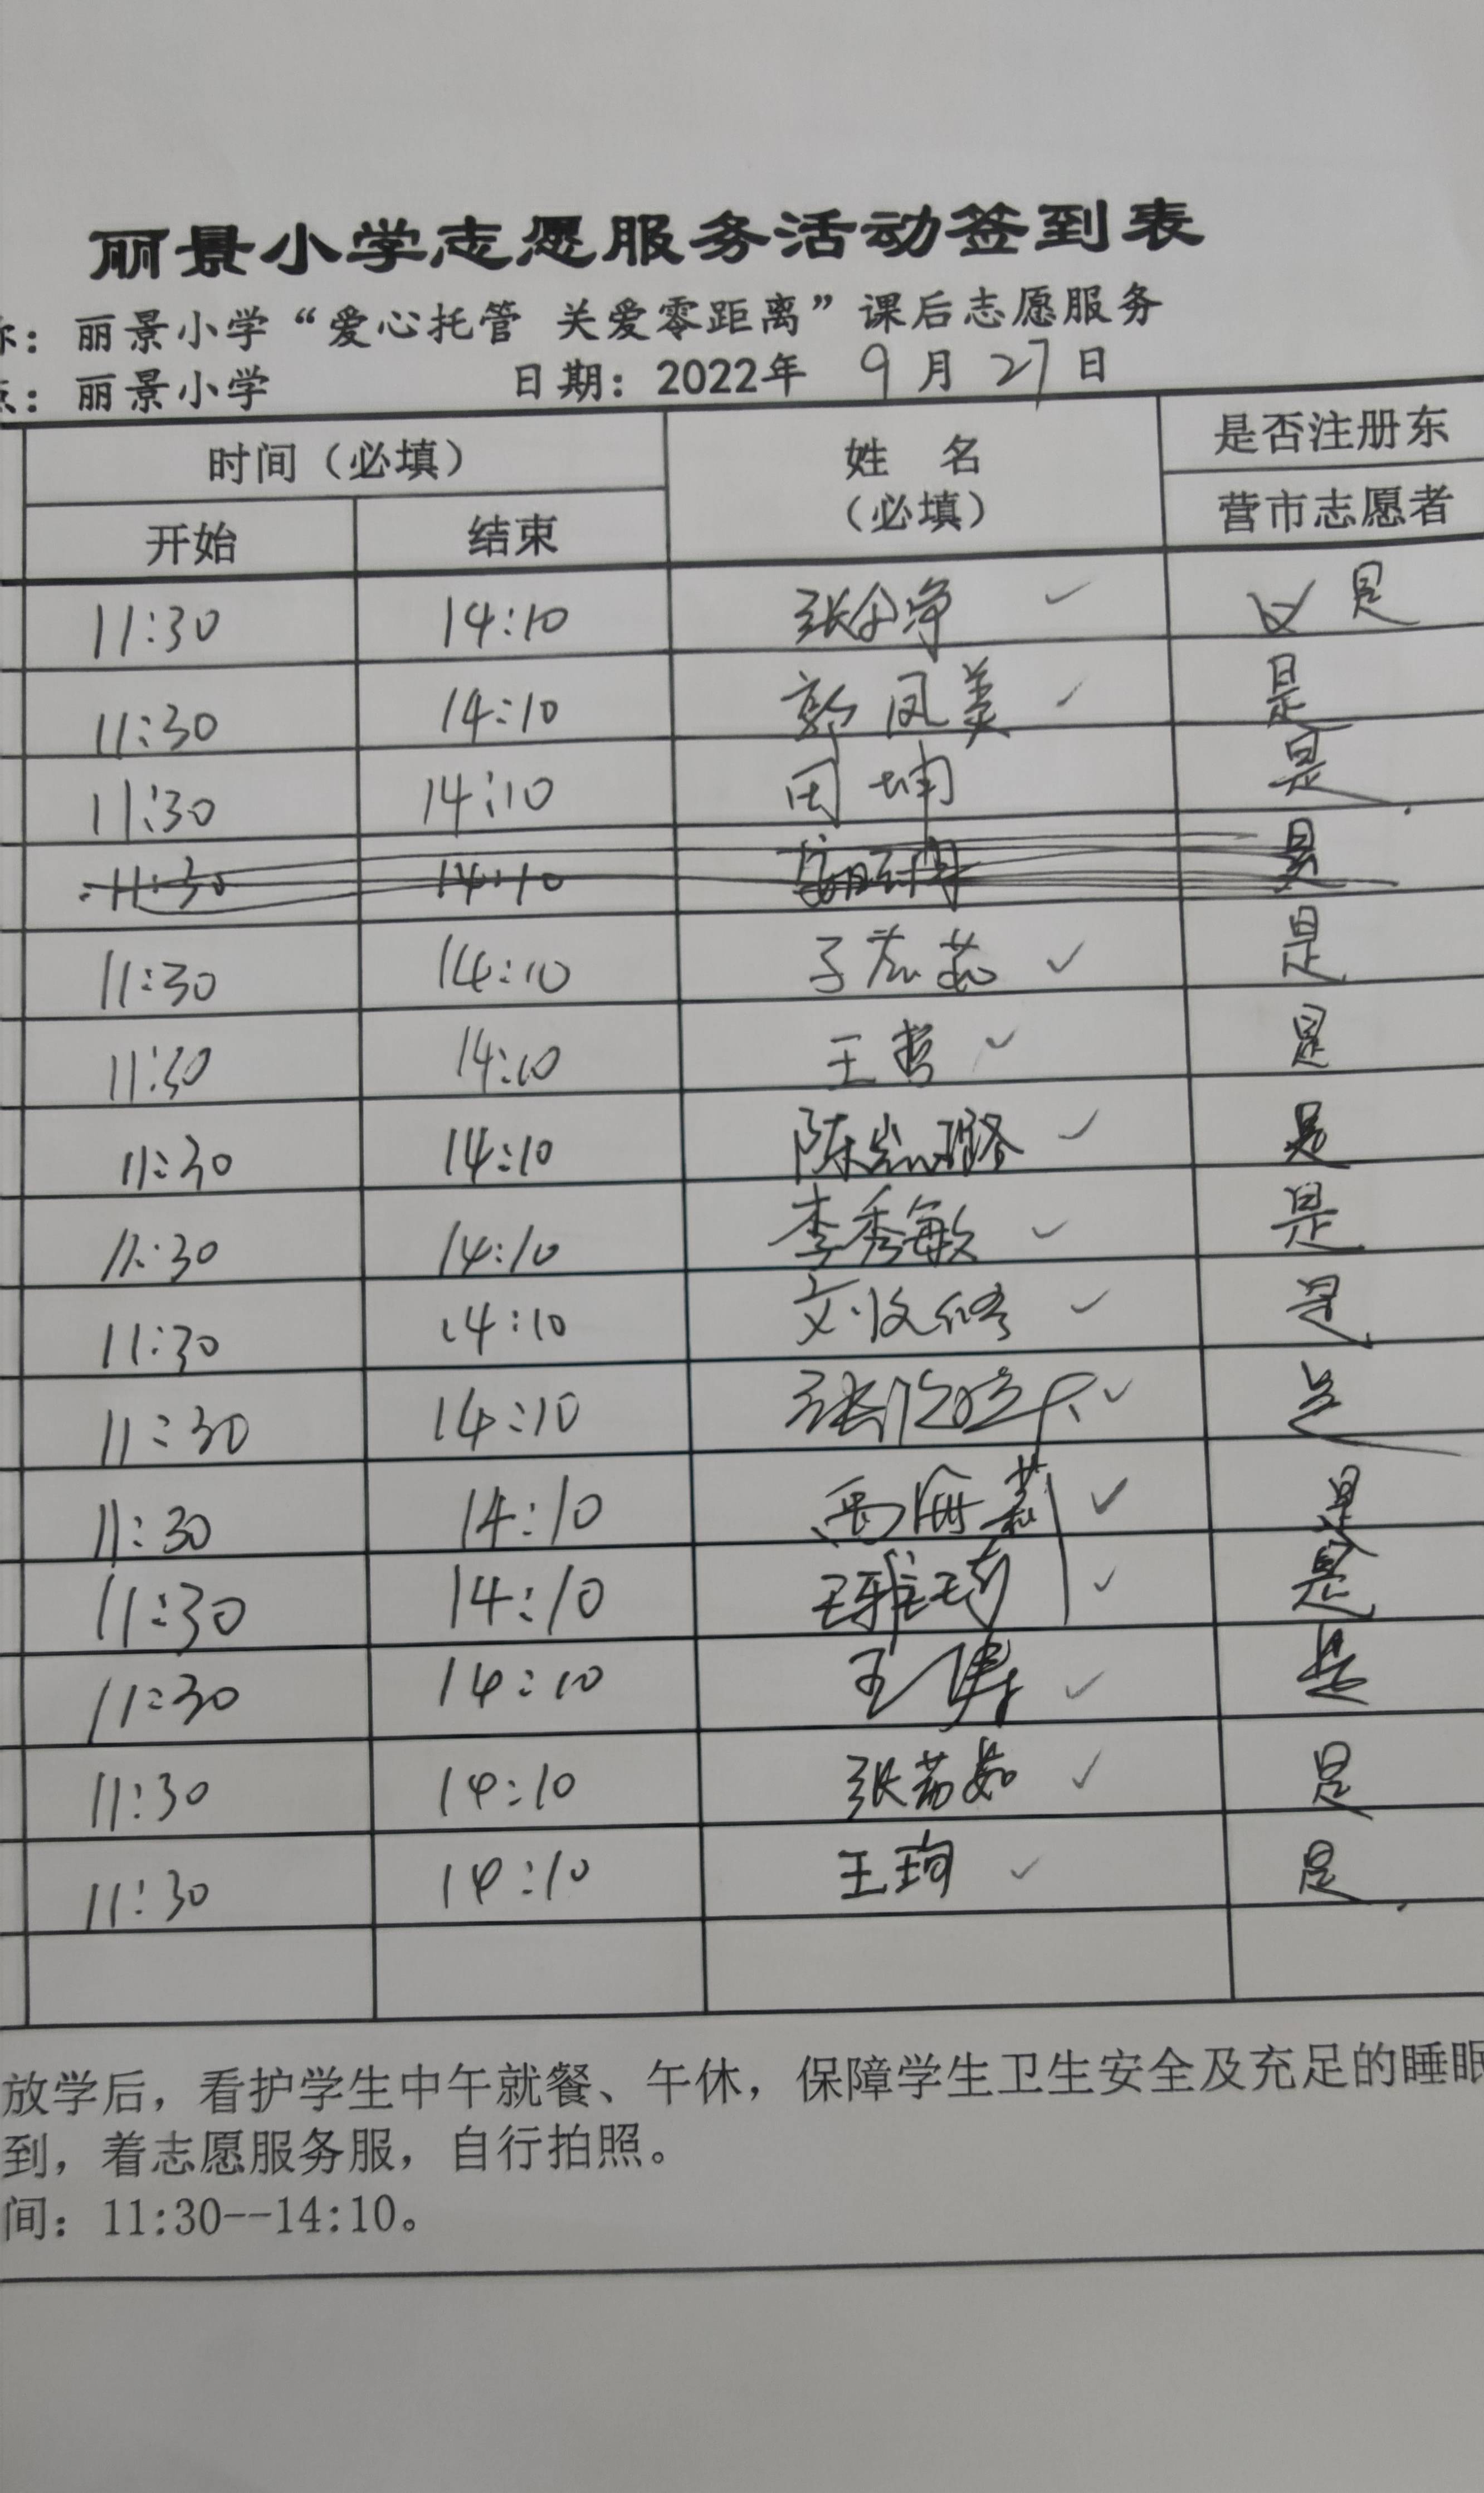 丽景小学志愿服务活动签到表
称：丽景小学“爱心托管 关爱零距离”课后志愿服务
点：丽景小学 日期：2022年 9月27日
时间（必填） 姓 名 （必填） 是否注册东
开始 结束 营市志愿者
11:30 14:10 张 净 是
11:30 14:10 郭凤美 是
11:30 14:10 田坤 是
11:30 14:10 是
11:30 14:10 是
11:30 14:10 王哲 是
11:30 14:10 陈 璐 是
11:30 14:10 李秀敏 是
11:30 14:10 是
11:30 14:10 张 是
11:30 14:10 莉 是
11:30 14:10 王雅琦 是
11:30 14:10 王 是
11:30 14:10 张茹茹 是
11:30 14:10 王珣 是
放学后，看护学生中午就餐、午休，保障学生卫生安全及充足的睡眠
到，着志愿服务服，自行拍照。
间：11:30--14:10。